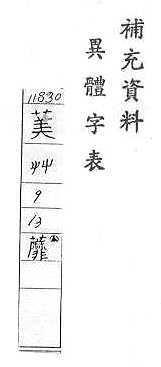 補充資料
異體字表
11830
艸
9
13